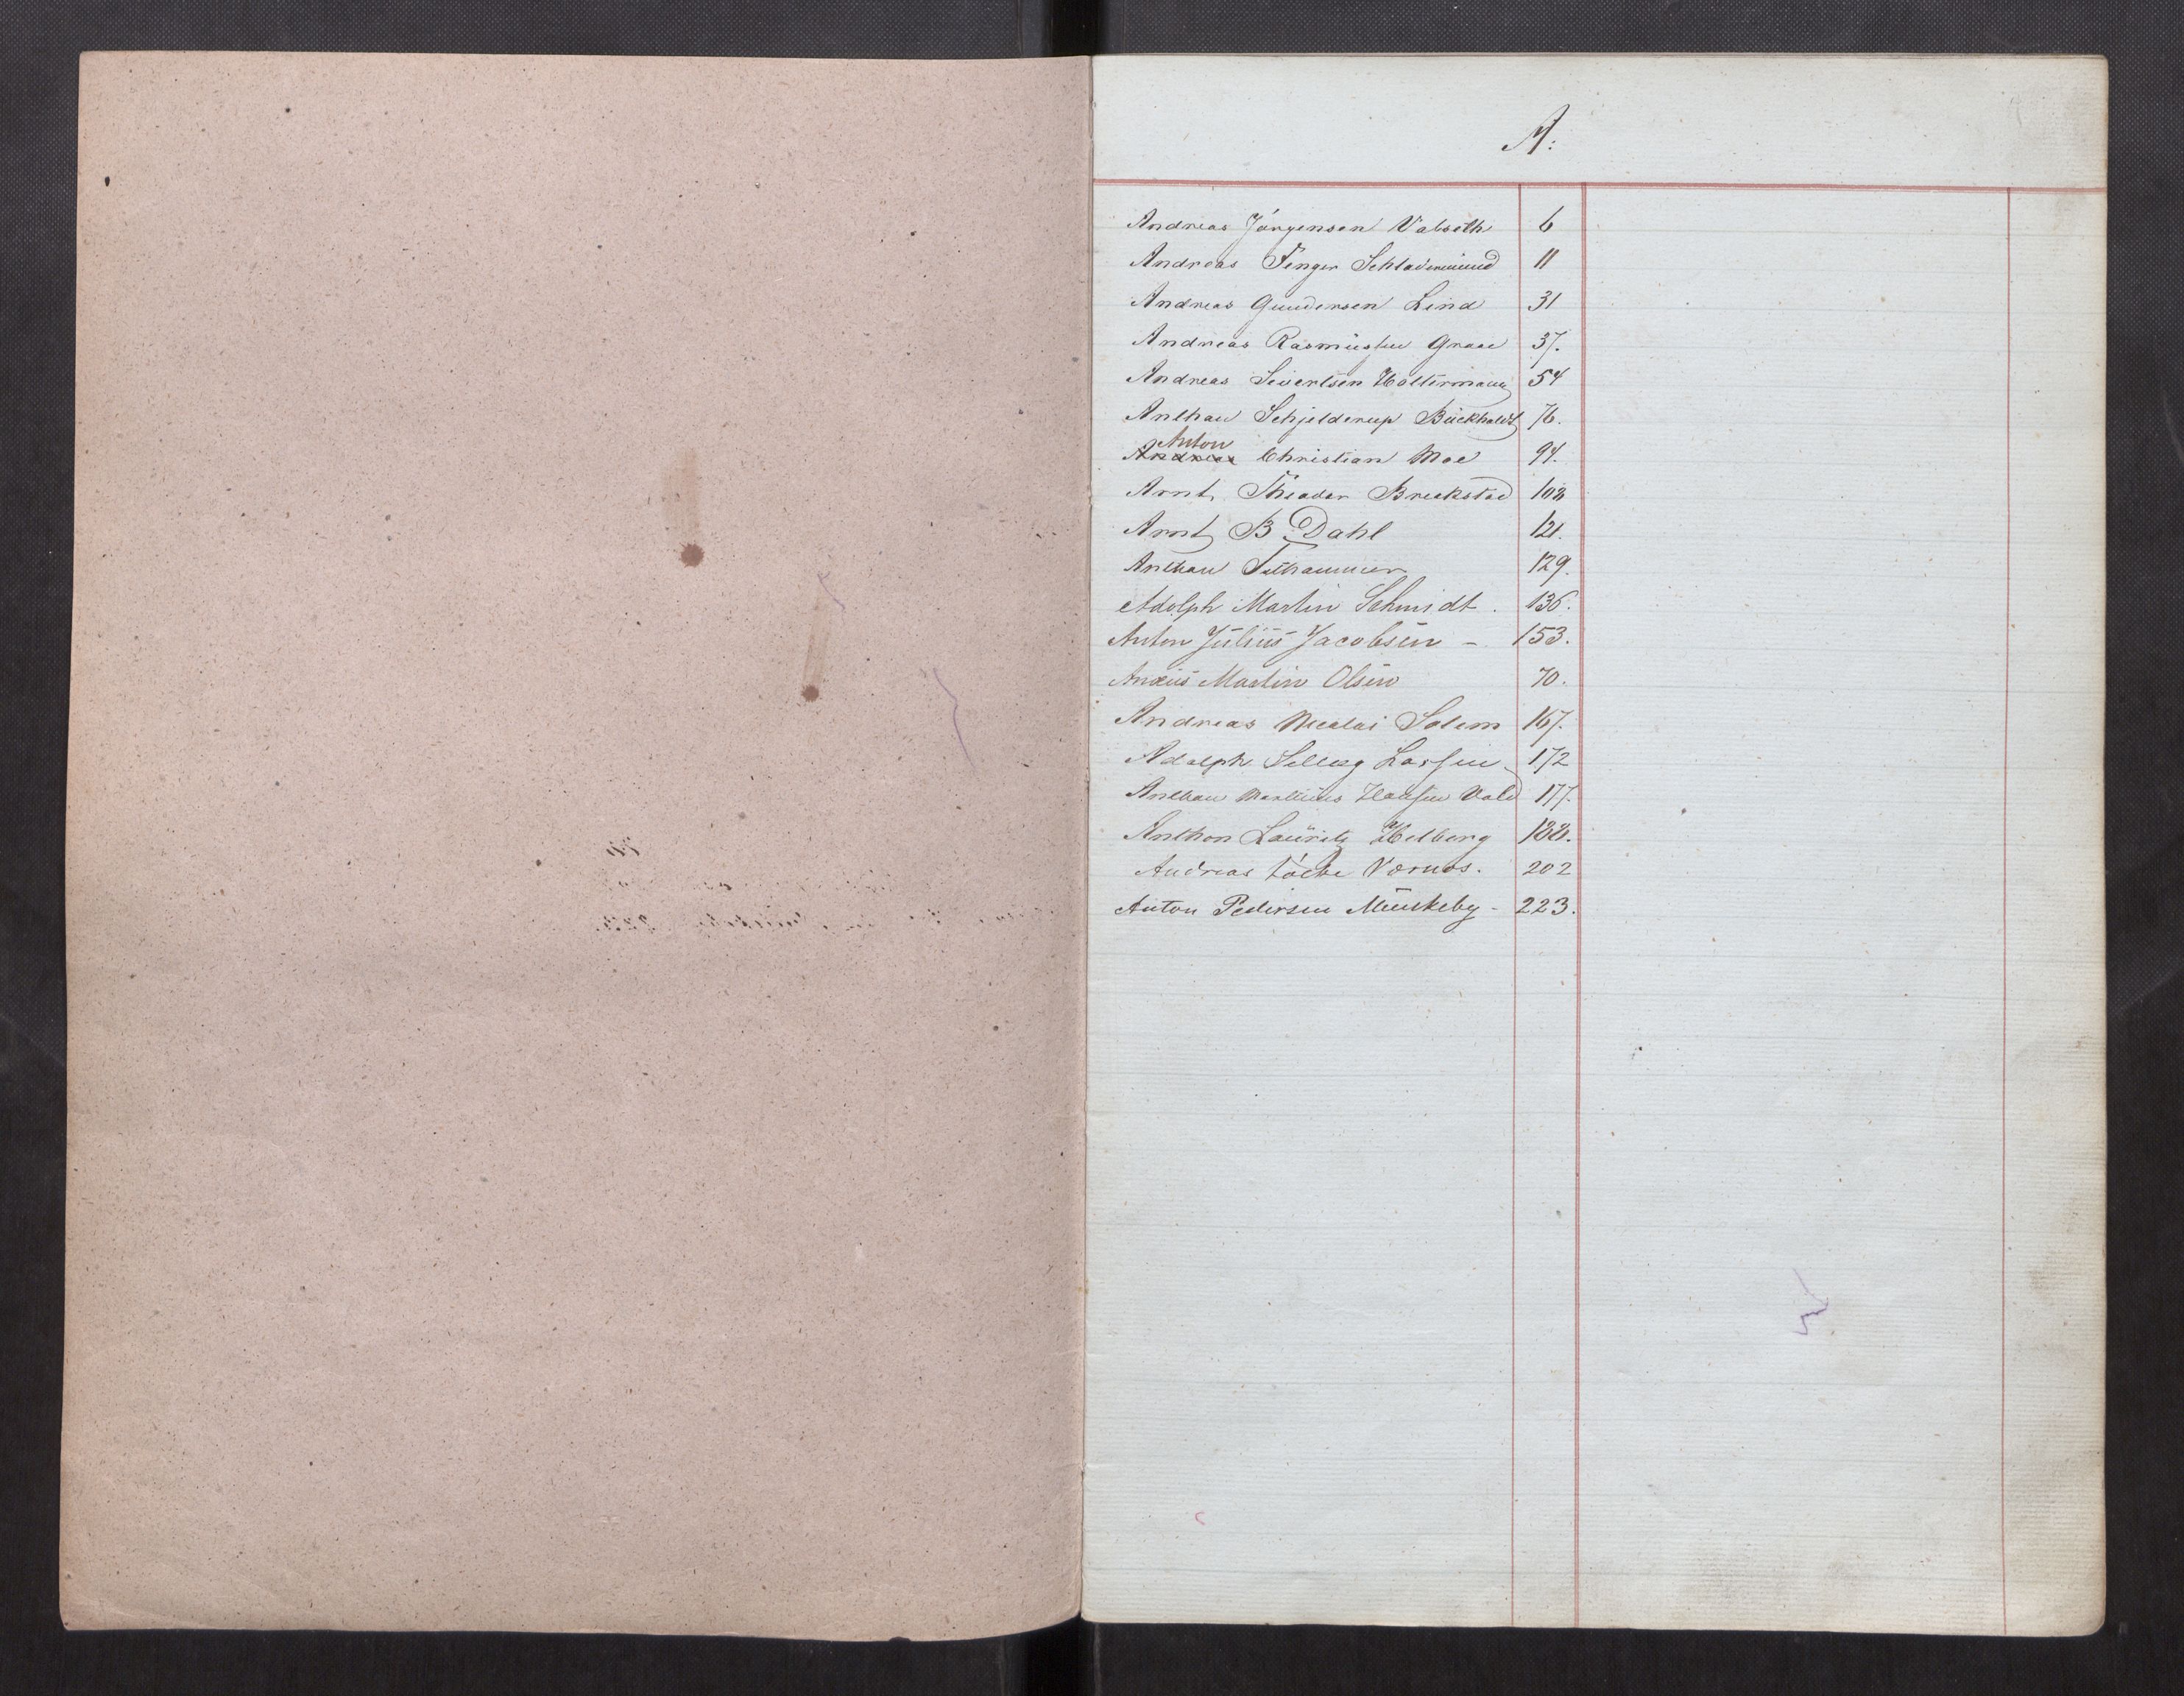 A:
Andreas Jörgensen Valseth 6
Andreas Finger Schladermund 11
Andreas Gundersen Lind 31
Andreas Rasmussen Graae 37.
Andreas Sivertsen Holtermann 54
Anthon Schjelderup Buckholdt 76.
Anton
Andreas Christian Moe 94.
Arnt Theodor Breckstad 108
Arnt B Dahl 121.
Anthon 129.
Adolph Martin Schmidt. 136.
Anton Julius Jacobsen - 153.
Martin Olsen 70.
Andreas Nicolai Solem 167.
Adolph Lassen 172
Anthon Martinus Hansen Vold 177.
Anthon Lauritz Helberg 188.
Andreas Værnes. 202
Anton Pedersen Munkeby - 223.